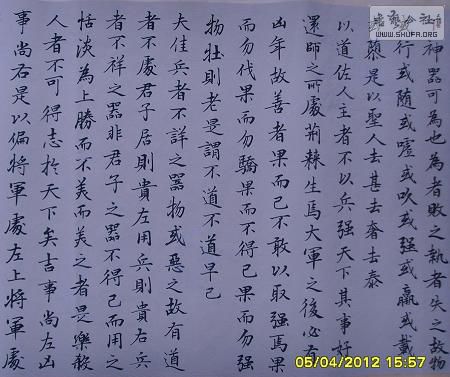 神器可為也為者敗之執者失之故物
行或随或嘘或吹或强或羸或載
隳是以聖人去甚去奢去泰
以道佐人主者不以兵强天下其事好
還師之所處荆棘生焉大軍之後必有
凶年故善者果而已不敢以取强焉果
而勿伐果而勿驕果而不得已果而勿强
物壮則老是謂不道不道早已
夫佳兵者不詳之器物或惡之故有道
者不處君子居則貴左用兵則貴右兵
者不祥之器非君子之器不得已而用之
恬淡為上勝而不美而美之者是樂殺
人者不可得志於天下矣吉事尚左凶
事尚右是以偏將軍處左上將軍處
WWW.SHUFA.ORG
05/04/2012 15:57